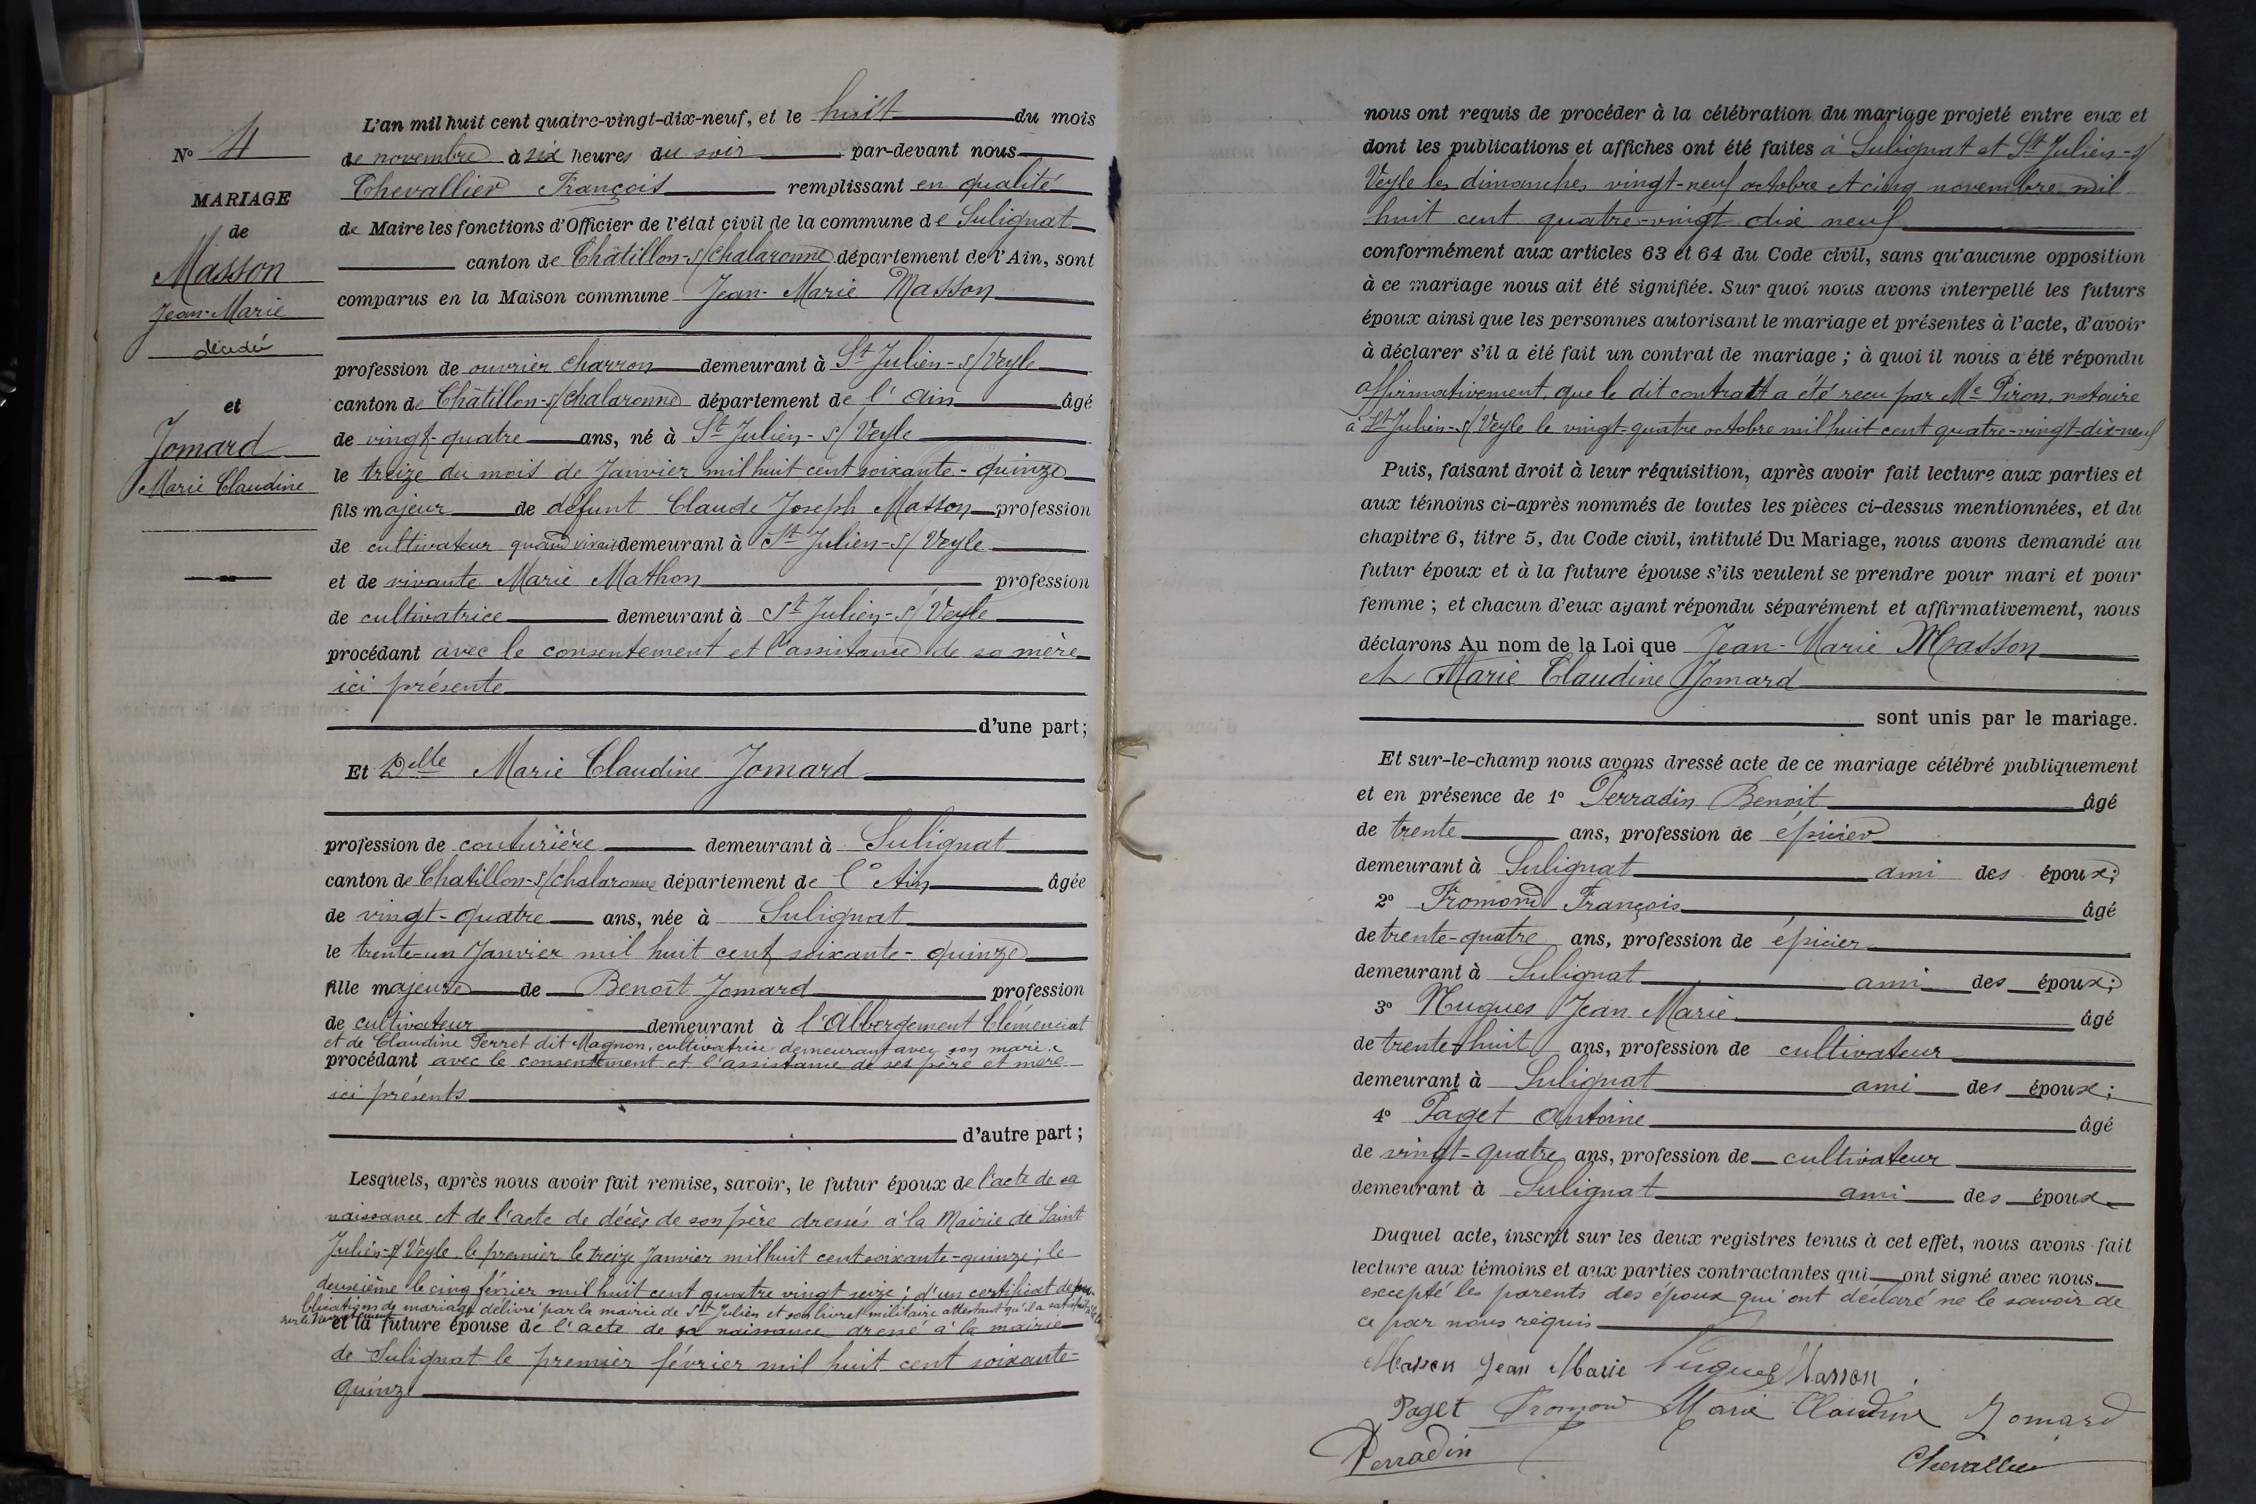 N° 4
MARIAGE
de
Masson
Jean-Marie
décédé
et
Jomard
Marie Claudine
L'an mil huit cent quatre-vingt-dix-neuf, et le huit du mois
de novembre à six heures du soir par-devant nous
Chevallier François remplissant en qualité
de Maire les fonctions d'Officier de l'état civil de la commune de Sulignat
canton de Châtillon-s/Chalaronne département de l'Ain, sont
comparus en la Maison commune Jean-Marie Masson
profession de ouvrier charron demeurant à St Julien-s/Veyle
canton de Châtillon-s/Chalaronne département de l'Ain âgé
de vingt-quatre ans, né à St Julien-s/Veyle
le treize du mois de Janvier mil huit cent soixante-quinze
fils majeur de défunt Claude Joseph Masson profession
de cultivateur quand vivait demeurant à St Julien-s/Veyle
et de vivante Marie Mathon profession
de cultivatrice demeurant à St Julien-s/Veyle
procédant avec le consentement et l'assistance de sa mère
ici présente
d'une part;
Et Delle Marie Claudine Jomard
profession de couturière demeurant à Sulignat
canton de Chatillon-s/Chalaronne département de l'Ain âgée
de vingt-quatre ans, née à Sulignat
le trente-un Janvier mil huit cent soixante-quinze
fille majeure de Benoît Jomard profession
de cultivateur demeurant à l'Abbergement Clémenciat
et de Claudine Perret dit Magnon, cultivatrice demeurant avec son mari
procédant avec le consentement et l'assistance de ses père et mère
ici présents
d'autre part;
Lesquels, après nous avoir fait remise, savoir, le futur époux de l'acte de sa
naissance et de l'acte de décès de son père dressés à la Mairie de Saint
Julien-s/Veyle le premier le treize Janvier mil huit cent soixante-quinze; le
deuxième le cinq février mil huit cent quatre vingt seize; d'un certificat de pu-
blications de mariage délivré par la mairie de St Julien et son livret militaire attestant qu'il a satisfait à la loi
sur le recrutement
et la future épouse de l'acte de sa naissance dressé à la mairie
de Sulignat le premier février mil huit cent soixante-
quinze
nous ont requis de procéder à la célébration du mariage projeté entre eux et
dont les publications et affiches ont été faites à Sulignat et St Julien-s/
Veyle les dimanches vingt-neuf octobre et cinq novembre mil
huit cent quatre-vingt dix neuf
conformément aux articles 63 et 64 du Code civil, sans qu'aucune opposition
à ce mariage nous ait été signifiée. Sur quoi nous avons interpellé les futurs
époux ainsi que les personnes autorisant le mariage et présentes à l'acte, d'avoir
à déclarer s'il a été fait un contrat de mariage; à quoi il nous a été répondu
affirmativement, que le dit contratt a été recu par Me Piron, notaire
à St Julien-s/Veyle le vingt-quatre octobre mil huit cent quatre-vingt-dix-neuf
Puis, faisant droit à leur réquisition, après avoir fait lecture aux parties et
aux témoins ci-après nommés de toutes les pièces ci-dessus mentionnées, et du
chapitre 6, titre 5, du Code civil, intitulé Du Mariage, nous avons demandé au
futur époux et à la future épouse s'ils veulent se prendre pour mari et pour
femme; et chacun d'eux ayant répondu séparément et affirmativement, nous
déclarons Au nom de la Loi que Jean-Marie Masson
et Marie Claudine Jomard
sont unis par le mariage.
Et sur-le-champ nous avons dressé acte de ce mariage célébré publiquement
et en présence de 1° Perradin Benoit âgé
de trente ans, profession de épicier
demeurant à Sulignat ami des époux;
2° Fromond François âgé
de trente-quatre ans, profession de épicier
demeurant à Sulignat ami des époux;
3° Nugues Jean Marie âgé
de trente-huit ans, profession de cultivateur
demeurant à Sulignat ami des époux;
4° Paget Antoine âgé
de vingt-quatre ans, profession de cultivateur
demeurant à Sulignat ami des époux
Duquel acte, inscrit sur les deux registres tenus à cet effet, nous avons fait
lecture aux témoins et aux parties contractantes qui ont signé avec nous
excepté les parents des epoux qui ont déclaré ne le savoir de
ce par nous requis
Masson Jean Marie Nugues Masson
Paget Fromond Marie Claudine Jomard
Perradin Chevallier